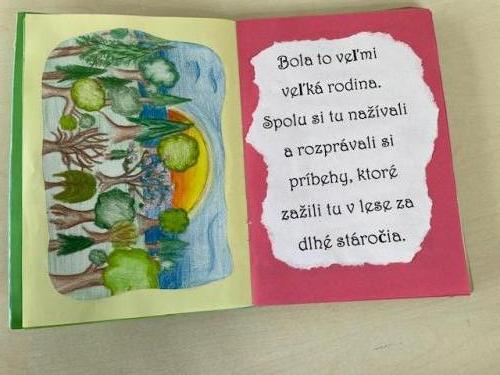 Bola to veľmi
veľká rodina.
Spolu si tu nažívali
a rozprávali si
príbehy, ktoré
zažili tu v lese za
dlhé stáročia.